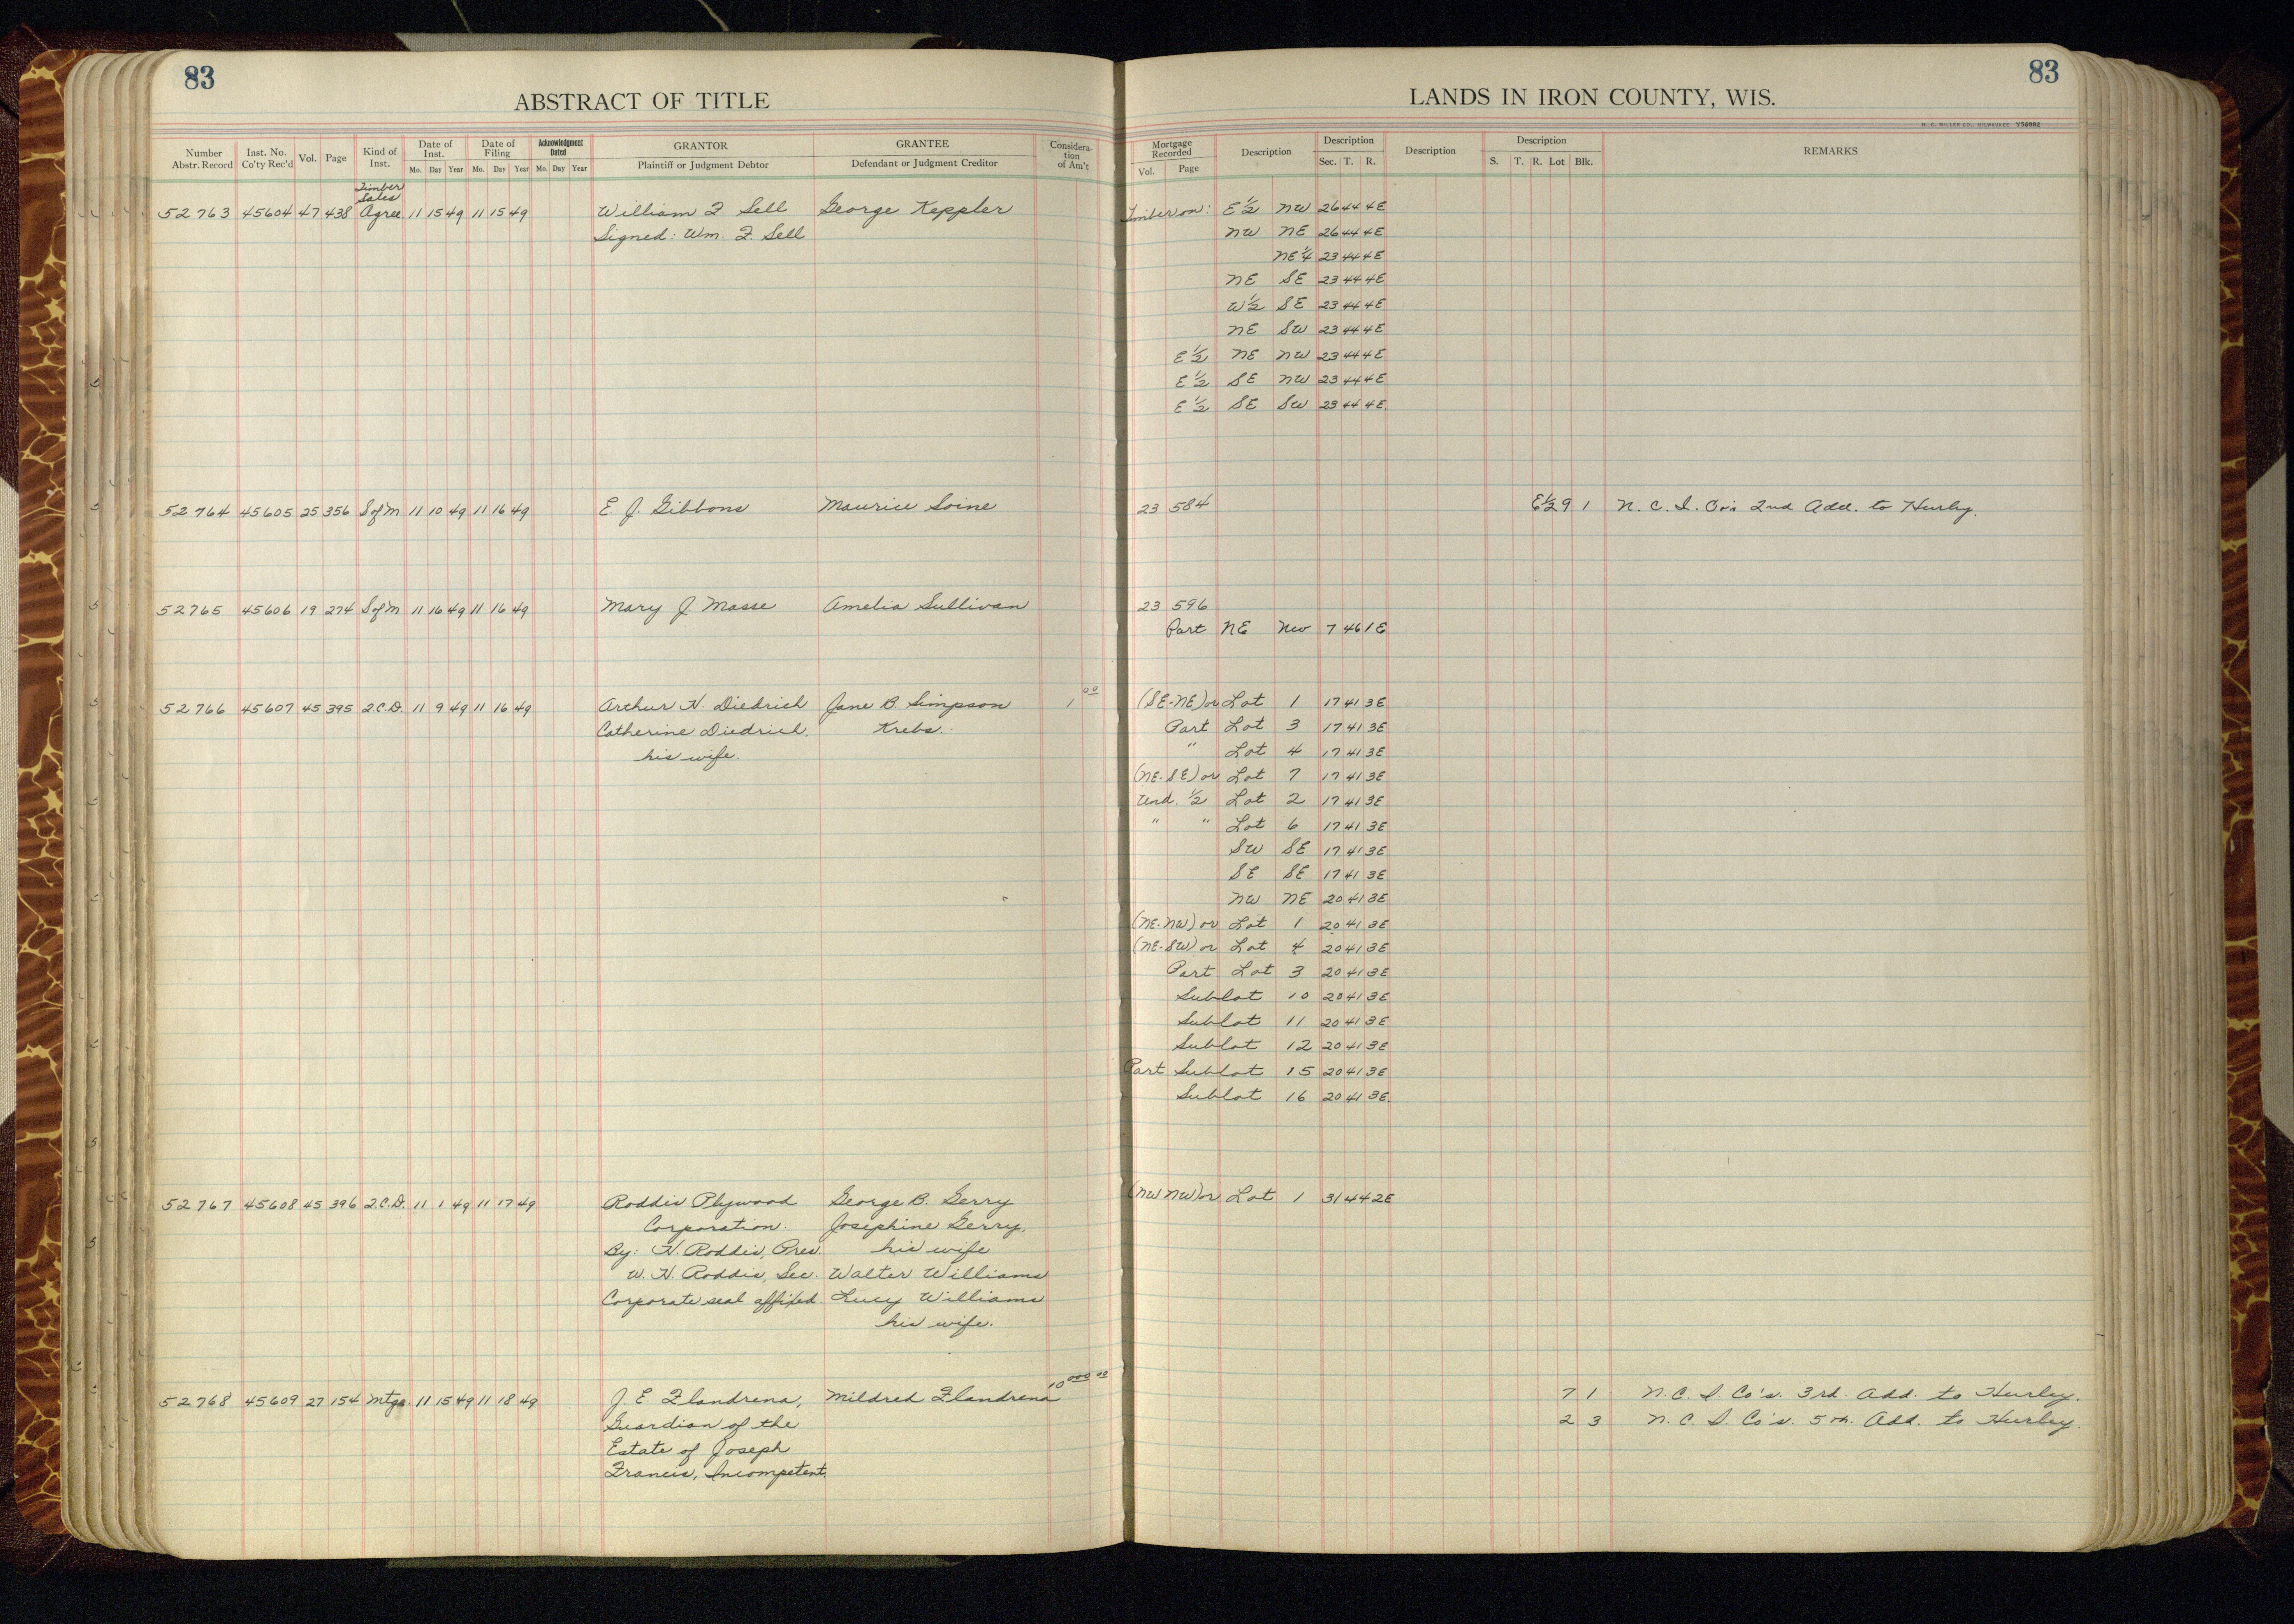 83
ABSTRACT OF TITLE
Number Abstr. Record
Inst. No. Co'ty Rec'd
Vol.
Page
Kind of Inst.
Date of Inst.
Mo. Day Year
Date of Filing
Mo. Day Year
Acknowledgment Dated
Mo. Day Year
GRANTOR
Plaintiff or Judgment Debtor
GRANTEE
Defendant or Judgment Creditor
Considera-tion of Am't
Timber
Sales
52763 45604 47 438 Agree 11 15 49 11 15 49 William F Sell George Keppler
Signed: Wm. F. Sell
52764 45605 25 356 S of M 11 10 49 11 16 49 E. J. Gibbons Maurice Soine
52765 45606 19 274 S of M 11 16 49 11 16 49 Mary J. Masse Amelia Sullivan
52766 45607 45 395 2.C.D. 11 9 49 11 16 49 Arthur H. Diedrich Jane B. Simpson 1 00
Catherine Diedrich, Krebs.
his wife.
52767 45608 45 396 2.C.D. 11 1 49 11 17 49 Roddis Plywood George B. Gerry
Corporation. Josephine Gerry,
By: H. Roddis, Pres. his wife
W. H. Roddis, Sec. Walter Williams
Corporate seal affixed. Lucy Williams
his wife.
52768 45609 27 154 Mtge. 11 15 49 11 18 49 J. E. Flandrena, Mildred Flandrena 10 000 00
Guardian of the
Estate of Joseph
Francis, Incompetent.
83
LANDS IN IRON COUNTY, WIS.
H. C. MILLER CO., MILWAUKEE Y58882
Mortgage Recorded
Vol. Page
Description
Description
Sec. T. R.
Description
Description
S. T. R. Lot Blk.
REMARKS
Timber on: E 1/2 NW 26 44 4E
NW NE 26 44 4E
NE 1/4 23 44 4E
NE SE 23 44 4E
W 1/2 SE 23 44 4E
NE SW 23 44 4E
E 1/2 NE NW 23 44 4E
E 1/2 SE NW 23 44 4E
E 1/2 SE SW 23 44 4E
23 584 E 1/2 9 1 N. C. I. Co's 2nd Add. to Hurley.
23 596
Part NE NW 7 46 1E
(SE-NE) or Lot 1 17 41 3E
Part Lot 3 17 41 3E
" Lot 4 17 41 3E
(NE-SE) or Lot 7 17 41 3E
Und. 1/2 Lot 2 17 41 3E
" " Lot 6 17 41 3E
SW SE 17 41 3E
SE SE 17 41 3E
NW NE 20 41 3E
(NE-NW) or Lot 1 20 41 3E
(NE-SW) or Lot 4 20 41 3E
Part Lot 3 20 41 3E
Sublot 10 20 41 3E
Sublot 11 20 41 3E
Sublot 12 20 41 3E
Part Sublot 15 20 41 3E
Sublot 16 20 41 3E.
(NW NW) or Lot 1 31 44 2E
7 1 N. C. I. Co's. 3rd. Add. to Hurley.
2 3 N. C. I. Co's. 5th. Add. to Hurley.